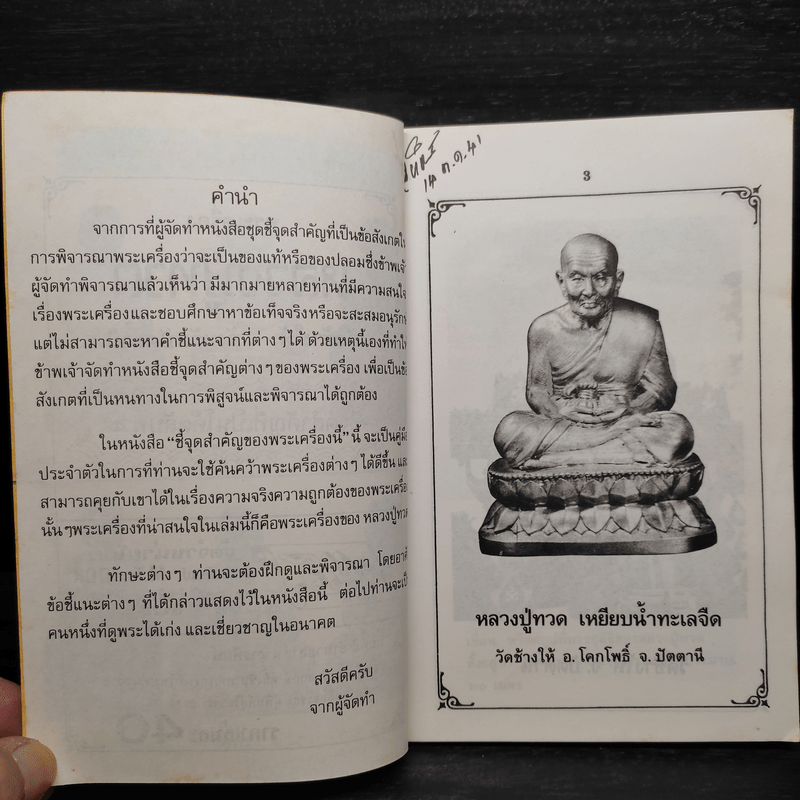 คำนำ
จากการที่ผู้จัดทำหนังสือชุดชี้จุดสำคัญที่เป็นข้อสังเกตใ
การพิจารณาพระเครื่องว่าจะเป็นของแท้หรือของปลอมซึ่งข้าพเจ้า
ผู้จัดทำพิจารณาแล้วเห็นว่า มีมากมายหลายท่านที่มีความสนใจ
เรื่องพระเครื่องและชอบศึกษาหาข้อเท็จจริงหรือจะสะสมอนุรักษ
แต่ไม่สามารถจะหาคำชี้แนะจากที่ต่างๆได้ ด้วยเหตุนี้เองที่ทำให
ข้าพเจ้าจัดทำหนังสือชี้จุดสำคัญต่างๆของพระเครื่อง เพื่อเป็นข้อ
สังเกตที่เป็นหนทางในการพิสูจน์และพิจารณาได้ถูกต้อง
ในหนังสือ “ชี้จุดสำคัญของพระเครื่องนี้” นี้ จะเป็นคู่มือ
ประจำตัวในการที่ท่านจะใช้ค้นคว้าพระเครื่องต่างๆ ได้ดีขึ้น และ
สามารถคุยกับเขาได้ในเรื่องความจริงความถูกต้องของพระเครื่อง
นั้นๆพระเครื่องที่น่าสนใจในเล่มนี้ก็คือพระเครื่องของ หลวงปู่ทวด
ทักษะต่างๆ ท่านจะต้องฝึกดูและพิจารณา โดยอาศั
ข้อชี้แนะต่างๆ ที่ได้กล่าวแสดงไว้ในหนังสือนี้ ต่อไปท่านจะเป็
คนหนึ่งที่ดูพระได้เก่ง และเชี่ยวชาญในอนาคต
สวัสดีครับ
จากผู้จัดทำ
14 ต.ค. 41
3
หลวงปู่ทวด เหยียบน้ำทะเลจืด
วัดช้างให้ อ. โคกโพธิ์ จ. ปัตตานี